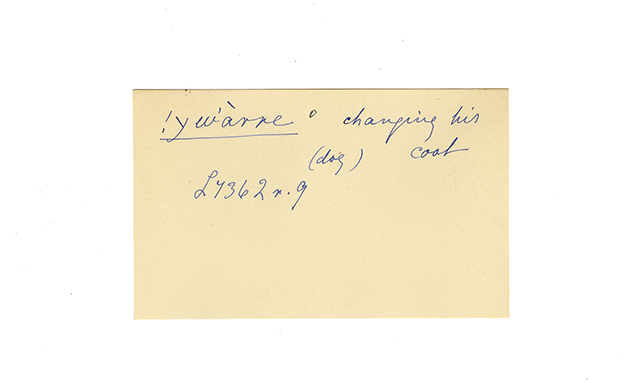 !ywàrre ° changing his
(dog) coat
L7362 r. 9